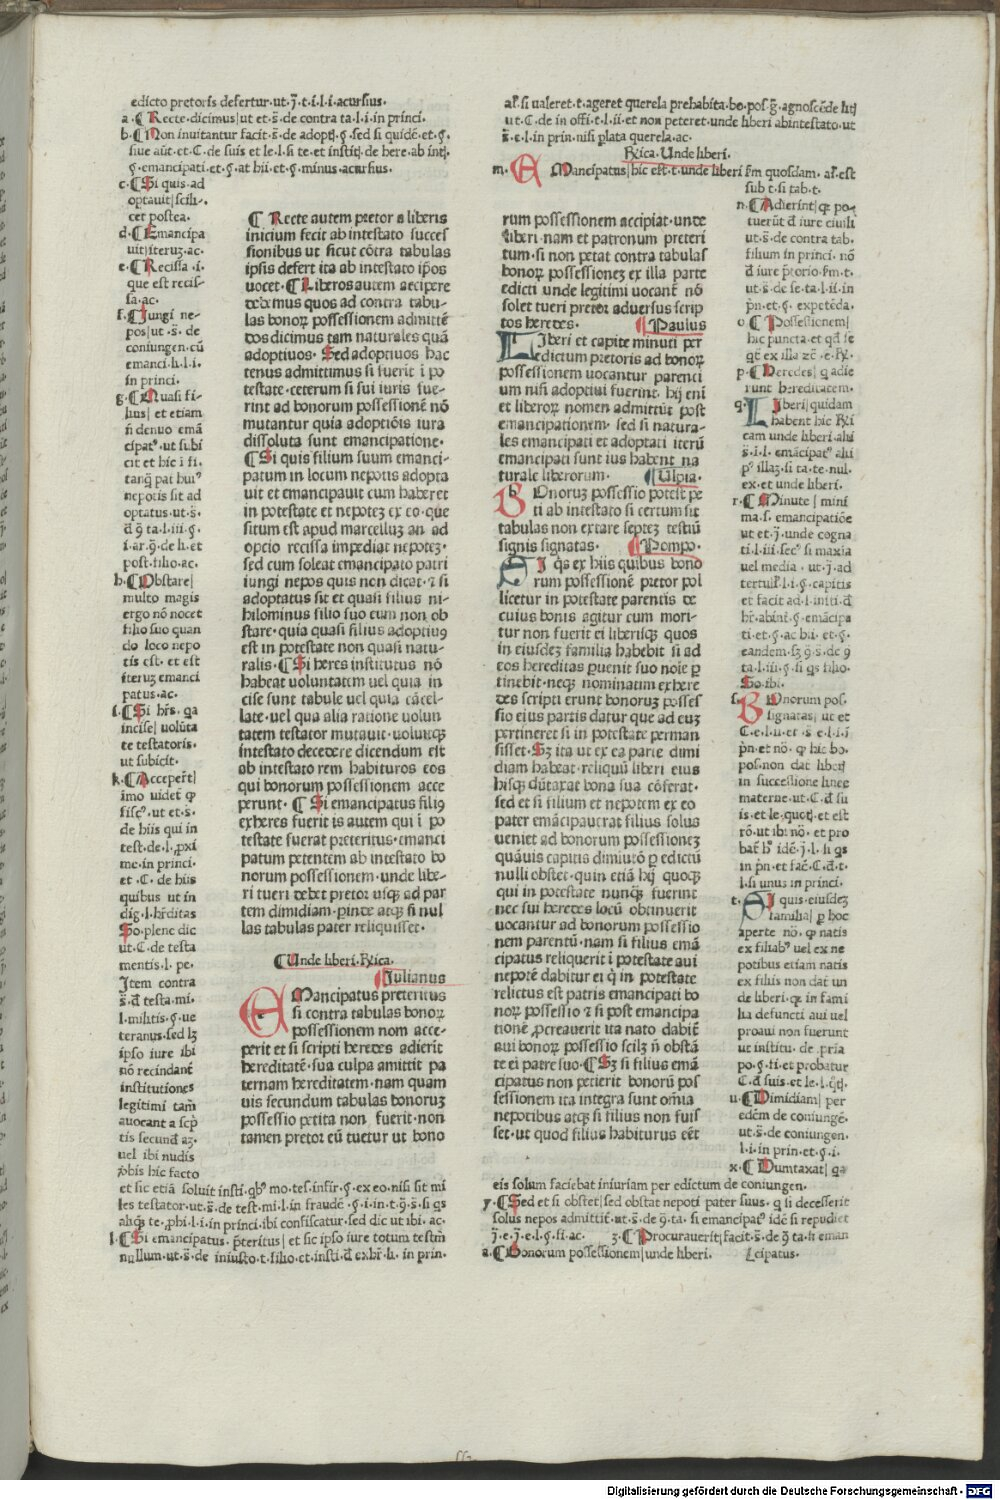 edicto pretoris defertur·ut·j̄·t·i·l·i·acursius·
a·¶Recte·dicimus|ut et·s̄·de contra ta·l·i·in princi·
b·¶Non inuitantur facit·s̄·de adoptj·§·sed si quidē·et·§·
siue aūt·et·C·de suis et le·l·si te·et institj·de here·ab intj·
§·emancipati·et·§·at hii·et·§·minus·acursius·
c·¶Si quis·ad
optauit|scili·
cet postea·
d·¶Emancipa
uit|iteruz·ac·
e·¶Recissa·i·
que est recis-
sa·ac·
f·¶Jungi ne-
pos|ut·s̄·de
coniungen·cū
emanci·li·l·i·
in princi·
g·¶Quasi fi-
lius|et etiam
n̄ denuo emā
cipat⁹·ut subi
cit et hic i fi·
tanq̄ pat hui⁹
nepotis sit ad
optatus·ut·s̄·
post·filio·ac·
h·¶Obstare|
multo magis
ergo nō nocet
filio suo quan
do loco nepo
tis est·et est
iteruz emanci
patus·ac·
i·¶Si hr̄s·qa
incise|uolūta
te testatoris·
ut subicit·
k·¶Acceper̄t|
imo uidet̄ qp
fisc⁹·ut et·s̄·
de hiis qui in
test·de·l·pxi
me·in princi·
et·C·de hiis
quibus ut in
dig·l·hr̄ditas
So·plene dic
ut·C·de testa
mentis·l·pe·
Item contra
s̄·d̄ testa·mi·
l·militis·§·ue
teranus·sed lz
ipso iure ibi
nō recindant̄
institutiones
legitimi tam̄
auocant a scp̄
tis secund az·
uel ibi nudis
ȝbis hic facto
et sic etiā soluit insti·qb⁹ mo·tes·infir·§·ex eo·nisi sit mi
les testator·ut·s̄·de test·mi·l·in fraudē·§·i·in·t·q̄·s̄·si qs
aliqs te·phi·l·i·in princi·ibi confiscatur·sed dic ut ibi·ac·
l·¶Si emancipatus·p̄teritus|et sic ipso iure totum testm̄
nullum·ut·s̄·de iniusto·t·filio·et·insti·d̄ exhr̄·li·in prin·
¶Recte autem pretor a liberis
inicium fecit ab intestato succes
sionibus ut sicut cōtra tabulas
ipsis defert ita ab intestato ip̄os
uocet·¶Liberos autem accipere
debemus quos ad contra tabu-
las bonoꝝ possessionem admittē
dos dicimus tam naturales quā
adoptiuos·Sed adoptiuos hac
tenus admittimus si fuerit i po
testate·ceterum si sui iuris fue-
rint ad bonorum possessionē nō
mutantur quia adoptiōis iura
dissoluta sunt emancipatione·
¶Si quis filium suum emanci-
patum in locum nepotis adopta
uit et emancipauit cum haberet
in potestate et nepotez ex eo·que
situm est apud marcelluz an ad
opcio recissa impediat nepotez·
sed cum soleat emancipato patri
iungi nepos quis non dicat·⁊ si
adoptatus sit et quasi filius ni-
hilominus filio suo eum non ob
stare·quia quasi filius adoptiu⁹
est in potestate non quasi natu-
ralis·¶Si heres institutus nō
habeat uoluntatem uel quia in
cise sunt tabule uel quia cācel-
late·uel qua alia ratione uolun
tatem testator mutauit·uoluitqz
intestato decedere dicendum est
ab intestato rem habituros eos
qui bonorum possessionem acce
perunt·¶Si emancipatus fili⁹
exheres fuerit is autem qui i po
testate fuerat preteritus·emanci
patum petentem ab intestato bo
norum possessionem·unde libe-
ri tueri debet pretor usqz ad par
tem dimidiam·pinde atqz si nul
las tabulas pater reliquisset·
¶Unde liberi·Rica·
¶Iulianus
EMancipatus preteritus
si contra tabulas bonoꝝ
possessionem nom acce-
perit et si scripti heredes adierit
hereditatē·sua culpa amittit pa
ternam hereditatem·nam quam
uis secundum tabulas bonoruz
possessio petita non fuerit·non
tamen pretor eū tuetur ut bono
ar̄·si ualeret·t·ageret querela prehabita·bo·pos·ḡ·agnoscēde litj
ut·C·de in offi·t·l·ii·et non peteret·unde liberi abintestato·ut
s̄·e·l·in prin·nisi plata querela·ac·
Rica·Unde liberi·
m·EMancipatus|hic est·t·unde liberi f̄m quosdam·ar̄·est
sub t·si tab·t·
rum possessionem accipiat·unde
liberi·nam et patronum preteri
tum·si non petat contra tabulas
bonoꝝ possessionez ex illa parte
edicti unde legitimi uocant̄ nō
solet tueri pretor aduersus scrip
tos heredes·¶Paulus
LIberi et capite minuti per
edictum pretoris ad bonoꝝ
possessionem uocantur parenci
um nisi adoptiui fuerint·hij eni
et liberoꝝ nomen admittūt post
emancipationem·sed si natura-
les emancipati et adoptati iterū
emancipati sunt ius habent na
turale liberorum·¶Ulpia·
BOnoruz possessio potest pe
ti ab intestato si certum sit
tabulas non extare septez testiū
signis signatas·¶Pompo·
SI qs ex hiis quibus bono
rum possessionē pretor pol
licetur in potestate parentis de
cuius bonis agitur cum mori-
tur non fuerit ei liberisqz quos
in eiusdez familia habebit si ad
eos hereditas puenit suo noie p
tinebit·neqz nominatim exhere
des scripti erunt bonoruz posses
sio eius partis datur que ad euz
pertineret si in potestate perman
sisset·Sz ita ut ex ea parte dimi
diam habeat·reliquū liberi eius
hisqz dūtaxat bona sua cōferat·
sed et si filium et nepotem ex eo
pater emācipauerat filius solus
ueniet ad bonorum possessionez
quāuis capitis diminutō p edictū
nulli obstet·quin etiā hij quoqz
qui in potestate nunqz̄ fuerint
nec sui heredes locū obtinuerit
uocantur ad bonorum possessio
nem parentū·nam si filius emā
cipatus reliquerit i potestate aui
nepotē dabitur ei q̄ in potestate
relictus est patris emancipati bo
noꝝ possessio ⁊ si post emancipa
tionē pcreauerit ita nato dabit̄
aui bonoꝝ possessio scilz n̄ obstā
te ei patre suo·¶Sz si filius emā
cipatus non petierit bonorū pos
sessionem ita integra sunt om̄ia
nepotibus atqz si filius non fuis
set·ut quod filius habiturus eēt
n·¶Adierint|qz po-
tuerūt d̄ iure ciuili
ut·s̄·de contra tab·
filium in princi·nō
d̄ iure p̄torio·f̄m·t·
ut·s̄·de se·ta·l·ii·in
p̄n·et·§·expetēda·
o·¶Possessionem|
hic puncta·et qd̄ se
qt̄ ex illa zc̄·e·R·
p·¶Heredes|q adie
runt hereditatem·
q·LIberi|quidam
habent hic R̄i
cam unde liberi·alii
s̄·i·l·emācipat⁹ alii
p⁹ illaz·si ta·te·nul·
ex·et unde liberi·
r·¶Minute|mini
ma·s·emancipatiōe
ut et·j̄·unde cogna
ti·l·iii·sec⁹ si maxia
uel media·ut·j̄·ad
tertul·l·i·§·capitis
et facit ad·l·insti·d̄
hr̄·abint̄·§·emācipa
ti·et·§·ac hii·et·§·
eandem·sz q̄·s̄·de 9
ta·l·iii·§·si qs filio·
So·ibi·
s·BOnorum pos·
signatas|ut et
C·e·l·ii·et·s̄·e·l·i·i
p̄n·et nō·qz hic bo·
pos·non dat̄ liberj
in successione linee
materne·ut·C·d̄ su
is·et le·quotj·et est
rō·ut ibi nō·et pro
bat̄ h⁹ idē·j̄·l·si qs
in p̄n·et fac̄·C·d̄·t·
l·si unus in princi·
t·SI quis·eiusdez
familia|p hoc
aperte nō·q natis
ex filiab⁹ uel ex ne
potibus etiam natis
ex filiis non dat̄ un
de liberi·qz in fami
lia defuncti aui uel
proaui non fuerunt
ut institu·de pria
po·§·fi·et probatur
C·d̄ suis·et le·l·qtj·
u·¶Dimidiam|per
edc̄m de coniungē·
ut·s̄·de coniungen·
l·i·in prin·et·§·i·
x·¶Dumtaxat|qa
eis solum faciebat iniuriam per edictum de coniungen·
y·¶Sed et si obstet|sed obstat nepoti pater suus·q si decesserit
solus nepos admittit̄·ut·s̄·de 9·ta·si emancipat⁹ idē si repudiet
j̄·e·j̄·e·l·§·si·ac· z·¶Procurauerit|facit·s̄·de 9 ta·li eman
a·¶Bonorum possessionem|unde liberi· cipatus·
Digitalisierung gefördert durch die Deutsche Forschungsgemeinschaft · DFG